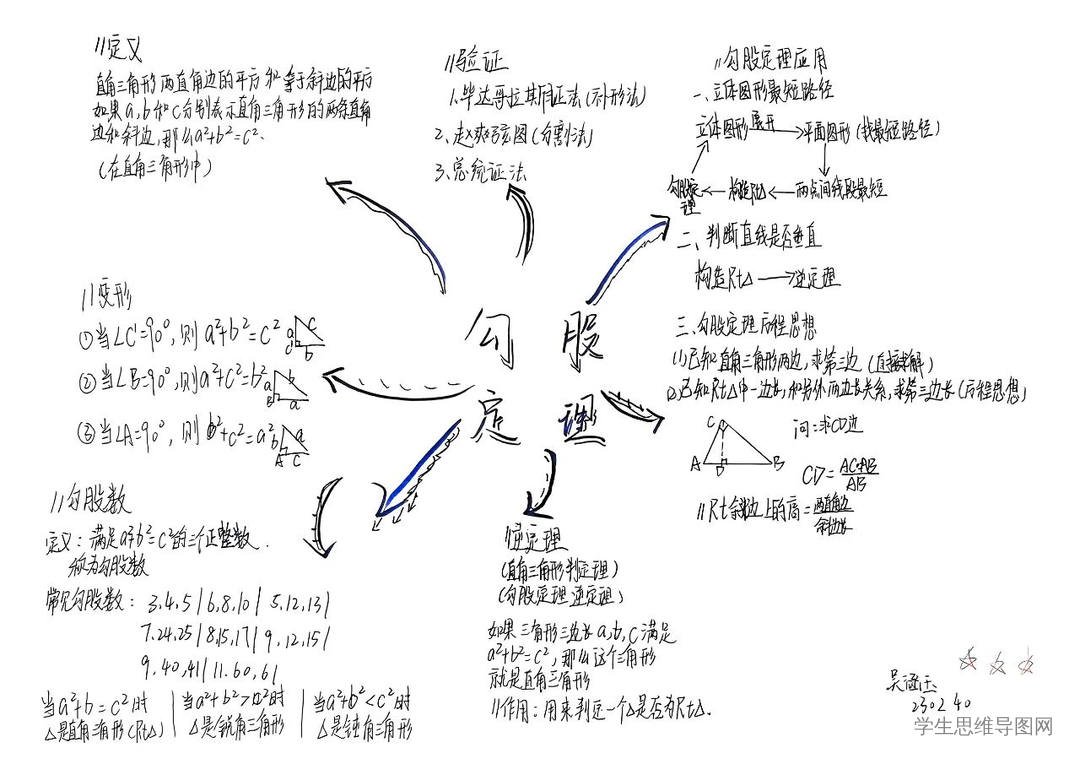 //定义
直角三角形两直角边的平方和等于斜边的平方
如果a,b和c分别表示直角三角形的两条直角
边和斜边,那么a²+b²=c².
(在直角三角形中)
//验证
1.毕达哥拉斯证法(补形法)
2.赵爽弦图(分割法)
3.总统证法
//勾股定理应用
一、立体图形最短路径
立体图形 展开 平面图形(找最短路径)
勾股定理 构造Rt△ 两点间线段最短
二、判断直线是否垂直
构造Rt△ 逆定理
三、勾股定理方程思想
(1)已知直角三角形两边,求第三边(直接求解)
(2)已知Rt△中一边长,和另外两边长关系,求第三边长(方程思想)
C
A D B
问:求CD边
CD=AC·AB/AB
//Rt斜边上的高=两直角边/斜边长
勾股
定理
//变形
①当∠C=90°,则a²+b²=c²
a c
C b
②当∠B=90°,则a²+c²=b²
a b
B a
③当∠A=90°,则b²+c²=a²
b a
A c
//勾股数
定义:满足a²+b²=c²的三个正整数.
称为勾股数
常见勾股数:3,4,5|6,8,10|5,12,13|
7,24,25|8,15,17|9,12,15|
9,40,41|11,60,61
当a²+b=c²时
△是直角三角形(Rt△)
当a²+b²>c²时
△是锐角三角形
当a²+b²<c²时
△是钝角三角形
//逆定理
(直角三角形判定理)
(勾股定理逆定理)
如果三角形三边长a,b,c满足
a²+b²=c²,那么这个三角形
就是直角三角形
//作用:用来判定一个△是否为Rt△.
230240
学生思维导图网